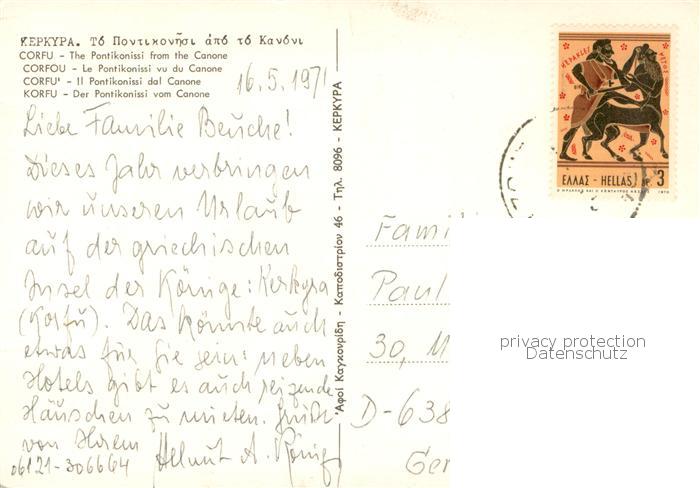 ΚΕΡΚΥΡΑ. Τό Ποντικονήσι ἀπό τό Κανόνι
CORFU - The Pontikonissi from the Canone
CORFOU - Le Pontikonissi vu du Canone
CORFU' - Il Pontikonissi dal Canone
KORFU - Der Pontikonissi vom Canone
16.5.1971
Liebe Familie Beuche!
Dieses Jahr verbringen
wir unseren Urlaub
auf der griechischen
Insel der Könige: Kerkyra
(Korfu). Das könnte auch
etwas für Sie sein: neben
Hotels gibt es auch reizende
Häuschen zu mieten.
von Ihrem Helmut A. König
06121-306664
Ἀφοί Καγκουρίδη - Καποδιστρίου 46 - Τηλ. 8096 - ΚΕΡΚΥΡΑ
ΕΛΛΑΣ - HELLAS 3
1970
Fami
Paul
30, M
D-638
Ger
privacy protection
Datenschutz